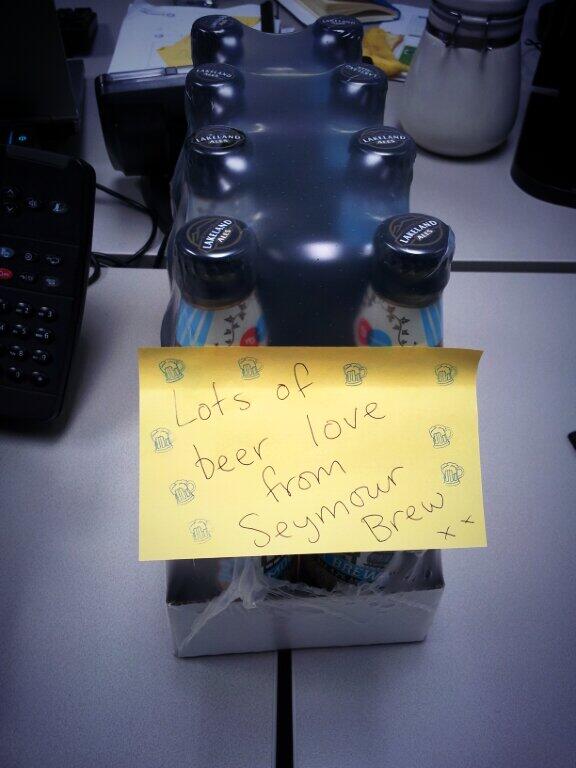 LAKELAND
LAKELAND
ALES
LAKELAND
ALES
LAKELAND
ALES
LAKELAND
ALES
Lots of
beer love
from
Seymour
Brew
x x
BREW